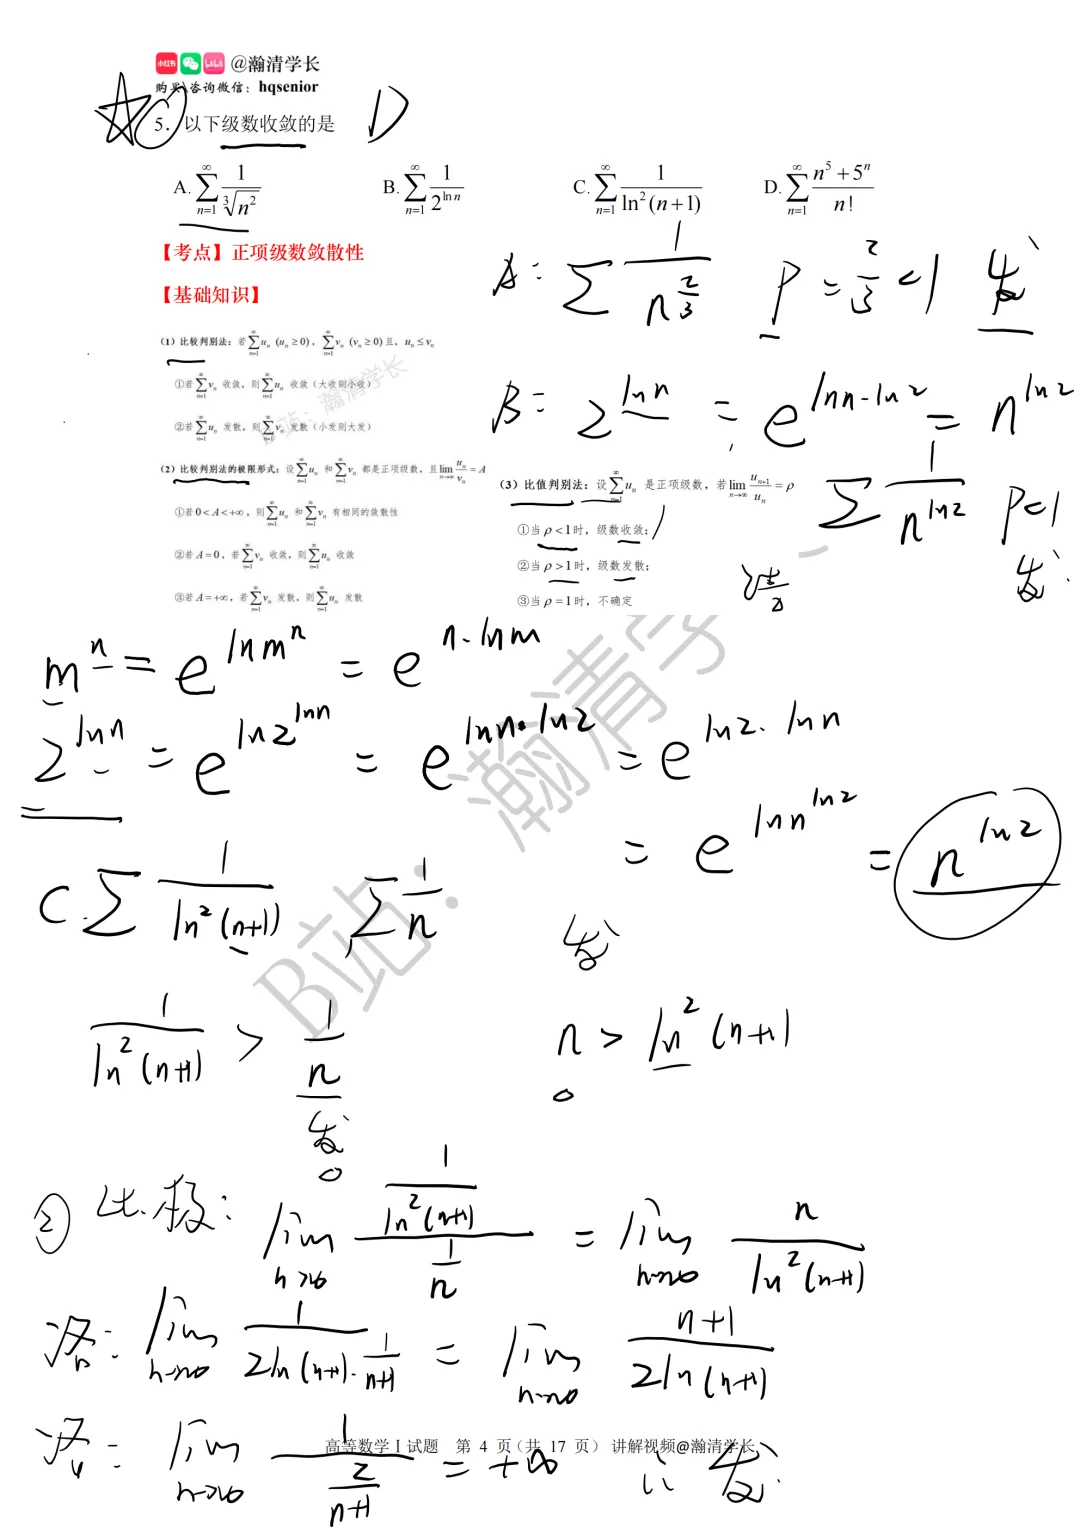 @瀚清学长
购买\咨询微信：hqsenior
5. 以下级数收敛的是 D
A. \sum_{n=1}^{∞} \frac{1}{\sqrt[3]{n^2}} B. \sum_{n=1}^{∞} \frac{1}{2^{\ln n}} C. \sum_{n=1}^{∞} \frac{1}{\ln^2(n+1)} D. \sum_{n=1}^{∞} \frac{n^5+5^n}{n!}
【考点】正项级数敛散性
A: \sum \frac{1}{n^{\frac{2}{3}}} P = \frac{2}{3} < 1 发
【基础知识】
（1）比较判别法：若 \sum_{n=1}^{∞} u_n (u_n ≥ 0)，\sum_{n=1}^{∞} v_n (v_n ≥ 0) 且，u_n ≤ v_n
①若 \sum_{n=1}^{∞} v_n 收敛，则 \sum_{n=1}^{∞} u_n 收敛（大收则小收）
②若 \sum_{n=1}^{∞} u_n 发散，则 \sum_{n=1}^{∞} v_n 发散（小发则大发）
B: 2^{\ln n} = e^{\ln n·\ln 2} = n^{\ln 2}
\sum \frac{1}{n^{\ln 2}} P<1
发
（2）比较判别法的极限形式：设 \sum_{n=1}^{∞} u_n 和 \sum_{n=1}^{∞} v_n 都是正项级数，且 \lim_{n→∞} \frac{u_n}{v_n} = A
①若 0 < A < +∞，则 \sum_{n=1}^{∞} u_n 和 \sum_{n=1}^{∞} v_n 有相同的敛散性
②若 A = 0，若 \sum_{n=1}^{∞} v_n 收敛，则 \sum_{n=1}^{∞} u_n 收敛
③若 A = +∞，若 \sum_{n=1}^{∞} v_n 发散，则 \sum_{n=1}^{∞} u_n 发散
（3）比值判别法：设 \sum_{n=1}^{∞} u_n 是正项级数，若 \lim_{n→∞} \frac{u_{n+1}}{u_n} = ρ
①当 ρ < 1 时，级数收敛；
②当 ρ > 1 时，级数发散；
③当 ρ = 1 时，不确定
m^n = e^{\ln m^n} = e^{n·\ln m}
2^{\ln n} = e^{\ln 2^{\ln n}} = e^{\ln n·\ln 2} = e^{\ln 2·\ln n}
= e^{\ln n^{\ln 2}} = n^{\ln 2}
C. \sum \frac{1}{\ln^2(n+1)} \sum \frac{1}{n} 发
\frac{1}{\ln^2(n+1)} > \frac{1}{n} n > \ln^2(n+1)
发
② 比.极: \lim_{n→∞} \frac{\frac{1}{\ln^2(n+1)}}{\frac{1}{n}} = \lim_{n→∞} \frac{n}{\ln^2(n+1)}
洛: \lim_{n→∞} \frac{1}{2\ln(n+1)·\frac{1}{n+1}} = \lim_{n→∞} \frac{n+1}{2\ln(n+1)}
洛: \lim_{n→∞} \frac{1}{\frac{2}{n+1}} = +∞ ∴ 发
高等数学 I 试题 第 4 页（共 17 页） 讲解视频@瀚清学长
B站：瀚清学长
B站：瀚清学